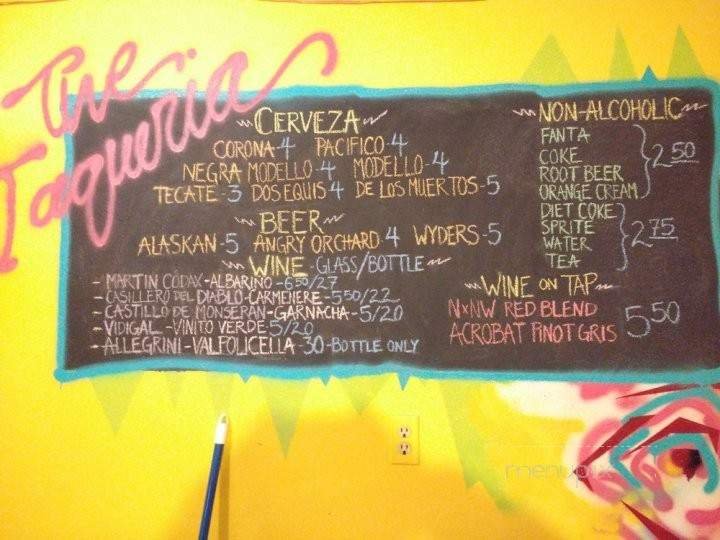 The
Taqueria
~CERVEZA~
CORONA-4 PACIFICO-4
NEGRA MODELLO-4 MODELLO-4
TECATE-3 DOS EQUIS 4 DE LOS MUERTOS-5
~BEER~
ALASKAN-5 ANGRY ORCHARD 4 WYDERS-5
~WINE-GLASS/BOTTLE~
- MARTIN CODAX-ALBARINO-650/27
- CASILLERO DEL DIABLO-CARMENERE-550/22
- CASTILLO DE MONSERAN-GARNACHA-5/20
- VIDIGAL-VINITO VERDE 5/20
- ALLEGRINI-VALFOLICELLA-30-BOTTLE ONLY
~NON-ALCOHOLIC~
FANTA
COKE
ROOT BEER
ORANGE CREAM
2 50
DIET COKE
SPRITE
WATER
TEA
2 75
~WINE ON TAP~
NxNW RED BLEND
ACROBAT PINOT GRIS
5 50